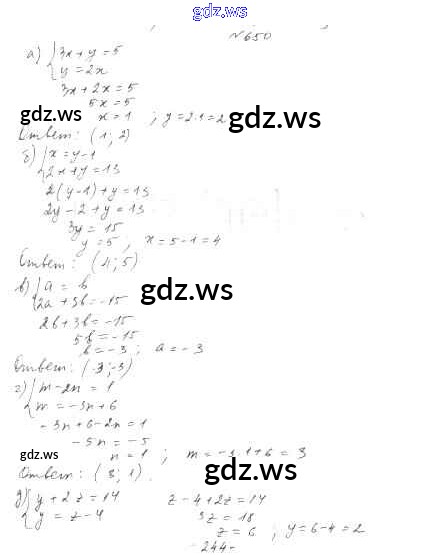 gdz.ws
№650
а) { 3x+y=5
y=2x
3x+2x=5
5x=5
x=1 ; y=2·1=2
gdz.ws
gdz.ws
Ответ: (1; 2)
б) { x=y-1
2x+y=13
2(y-1)+y=13
2y-2+y=13
3y=15
y=5, x=5-1=4
Ответ: (4; 5)
в) { a=b
2a+3b=-15
gdz.ws
2b+3b=-15
5b=-15
b=-3; a=-3
Ответ: (-3;-3)
г) { m-2n=1
m=-3n+6
-3n+6-2n=1
-5n=-5
n=1 ; m=-3·1+6=3
gdz.ws
gdz.ws
Ответ: (3; 1).
д) { y+2z=14 z-4+2z=14
y=z-4 3z=18
z=6 ; y=6-4=2
gdz.ws
-244-